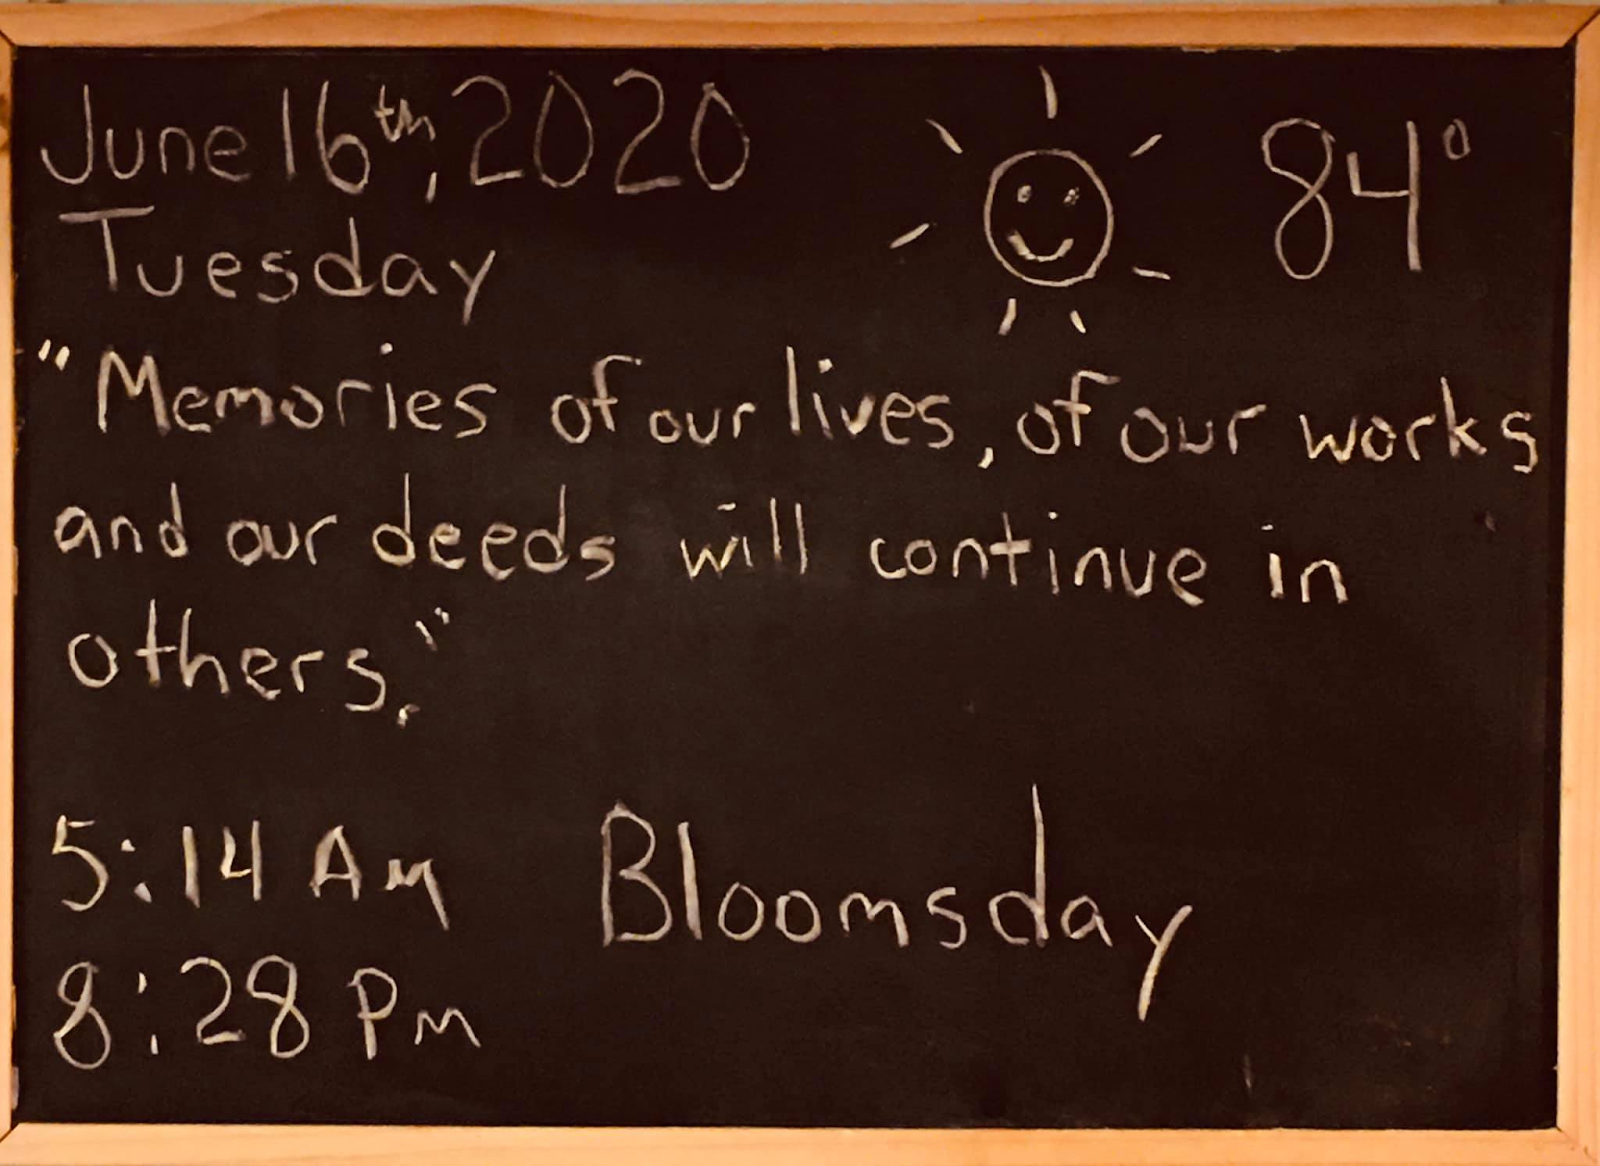 June 16th, 2020
84°
Tuesday
"Memories of our lives, of our works
and our deeds will continue in
others."
5:14 Am
Bloomsday
8:28 Pm